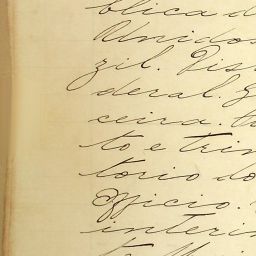 blica d
Unidos
zil. Dis
deral. 
ceira. 
to e trin
torio do
Officio.
interin